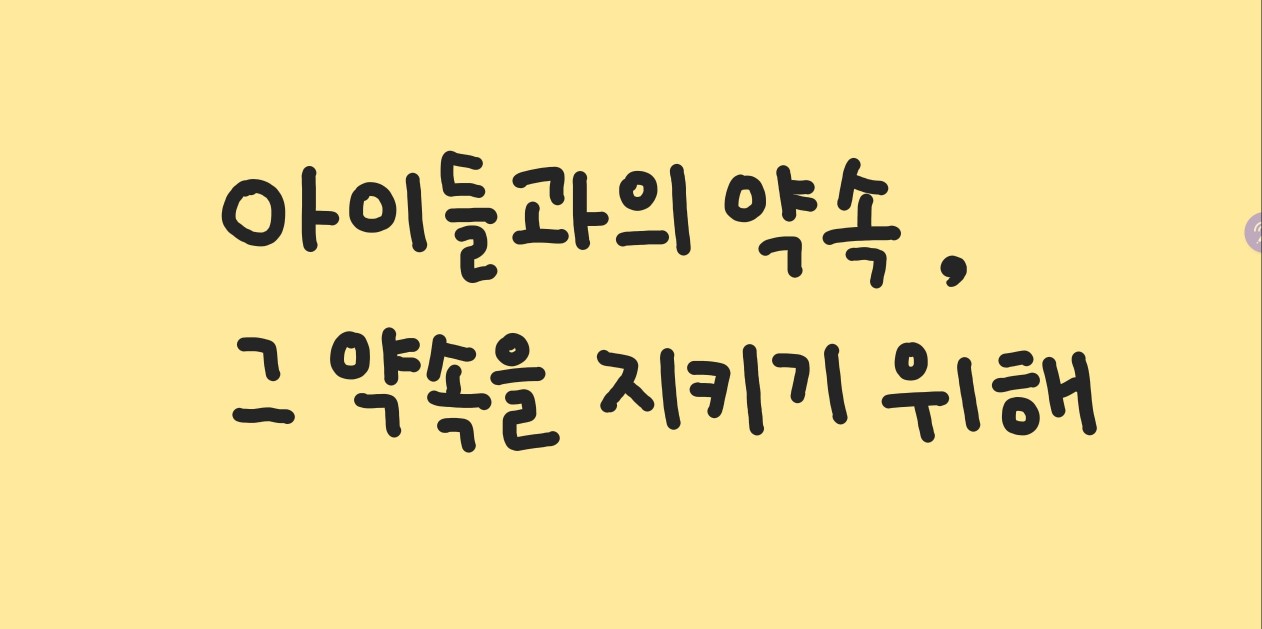 아이들과의 약속,
그 약속을 지키기 위해